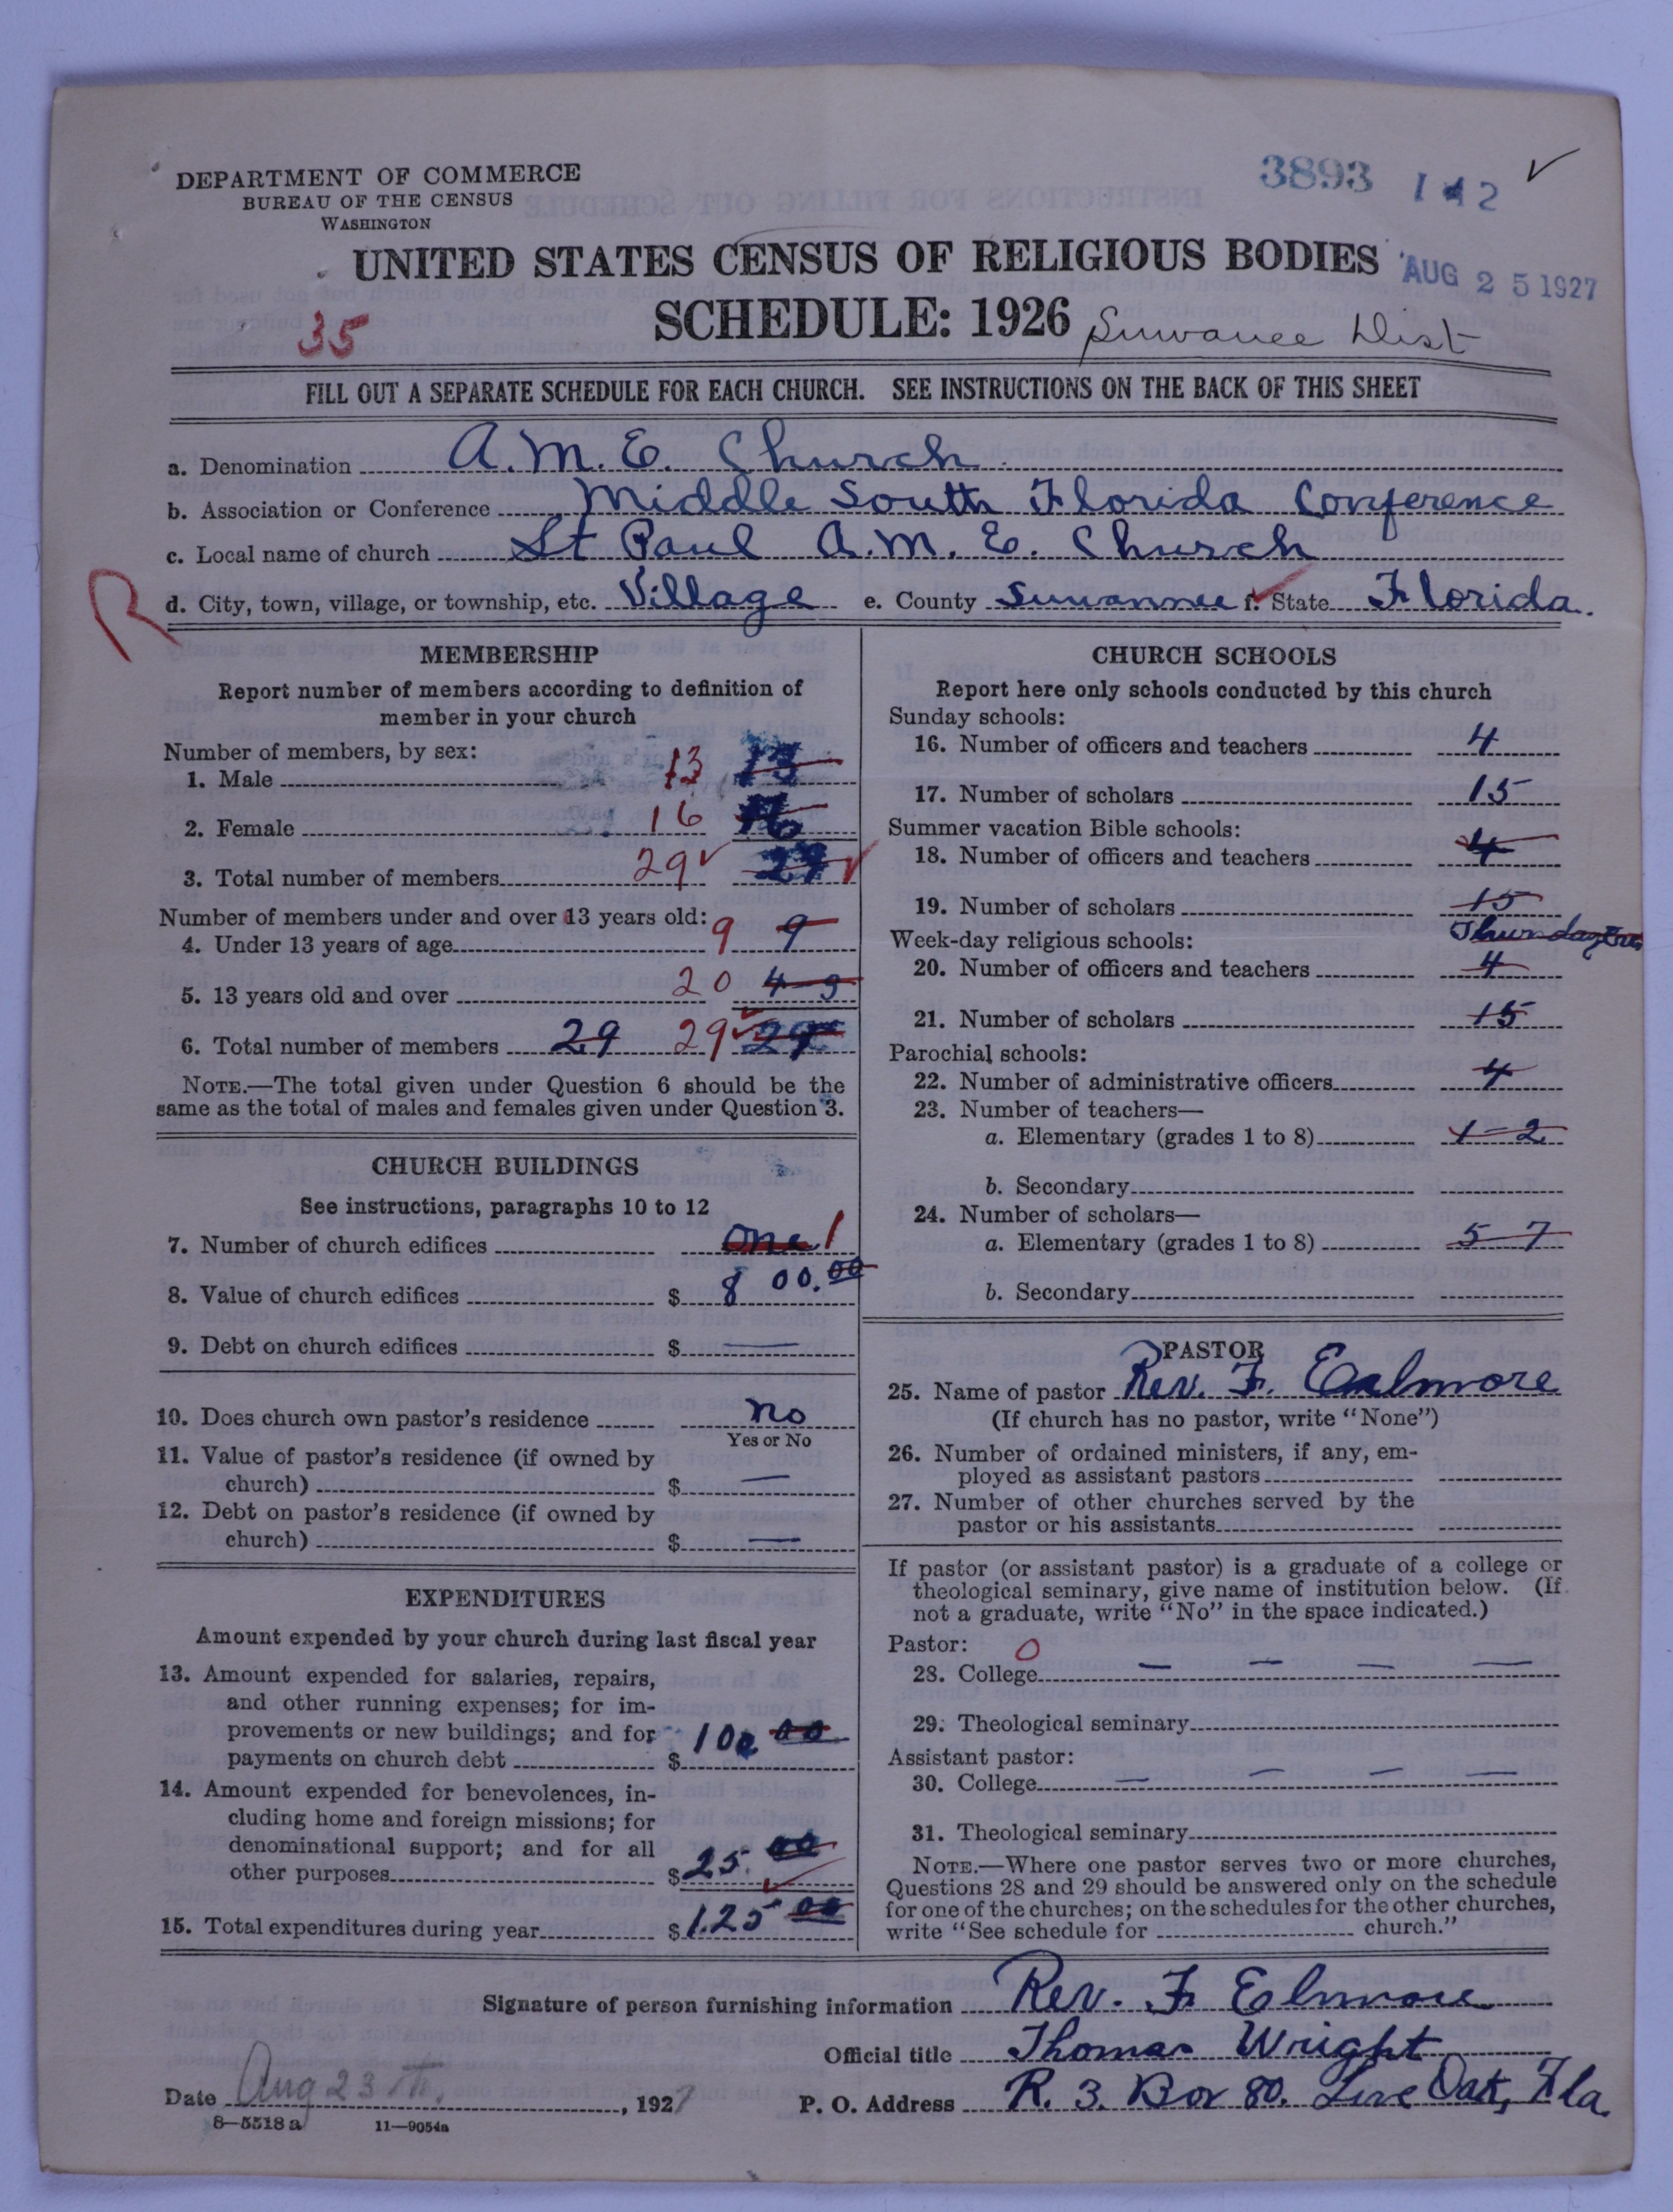 DEPARTMENT OF COMMERCE
BUREAU OF THE CENSUS
WASHINGTON
3893 1 2
UNITED STATES CENSUS OF RELIGIOUS BODIES
AUG 25 1927
SCHEDULE: 1926 Suwanee Dist
35
FILL OUT A SEPARATE SCHEDULE FOR EACH CHURCH. SEE INSTRUCTIONS ON THE BACK OF THIS SHEET
a. Denomination A.M.E. Church
b. Association or Conference Middle South Florida Conference
c. Local name of church St Paul A.M.E. Church
R
d. City, town, village, or township, etc. Village e. County Suwannee f. State Florida.
MEMBERSHIP
Report number of members according to definition of
member in your church
Number of members, by sex:
1. Male 13 13
2. Female 16 16
3. Total number of members 29 29
Number of members under and over 13 years old:
4. Under 13 years of age 9 9
5. 13 years old and over 20 4-9
6. Total number of members 29 29 29
NOTE.—The total given under Question 6 should be the
same as the total of males and females given under Question 3.
CHURCH BUILDINGS
See instructions, paragraphs 10 to 12
7. Number of church edifices One 1
8. Value of church edifices $ 800.00
9. Debt on church edifices $ —
10. Does church own pastor's residence No
Yes or No
11. Value of pastor's residence (if owned by
church) $ —
12. Debt on pastor's residence (if owned by
church) $ —
EXPENDITURES
Amount expended by your church during last fiscal year
13. Amount expended for salaries, repairs,
and other running expenses; for im-
provements or new buildings; and for
payments on church debt $ 100 00
14. Amount expended for benevolences, in-
cluding home and foreign missions; for
denominational support; and for all
other purposes $ 25. 00
15. Total expenditures during year $ 125 00
CHURCH SCHOOLS
Report here only schools conducted by this church
Sunday schools:
16. Number of officers and teachers 4
17. Number of scholars 15
Summer vacation Bible schools:
18. Number of officers and teachers 4
19. Number of scholars 15
Week-day religious schools:
20. Number of officers and teachers 4
21. Number of scholars 15
Parochial schools:
22. Number of administrative officers 4
23. Number of teachers—
a. Elementary (grades 1 to 8) 1-2
b. Secondary
24. Number of scholars—
a. Elementary (grades 1 to 8) 5-7
b. Secondary
PASTOR
25. Name of pastor Rev. F. Ealmore
(If church has no pastor, write "None")
26. Number of ordained ministers, if any, em-
ployed as assistant pastors
27. Number of other churches served by the
pastor or his assistants
If pastor (or assistant pastor) is a graduate of a college or
theological seminary, give name of institution below. (If
not a graduate, write "No" in the space indicated.)
Pastor: 0
28. College — — — —
29. Theological seminary
Assistant pastor:
30. College — — — —
31. Theological seminary
NOTE.—Where one pastor serves two or more churches,
Questions 28 and 29 should be answered only on the schedule
for one of the churches; on the schedules for the other churches,
write "See schedule for church."
Signature of person furnishing information Rev. F Ealmore
Official title Thomas Wright
Date Aug 23 th, 1927 P. O. Address R. 3. Box 80. Live Oak, Fla.
8—5518 a 11—9054a